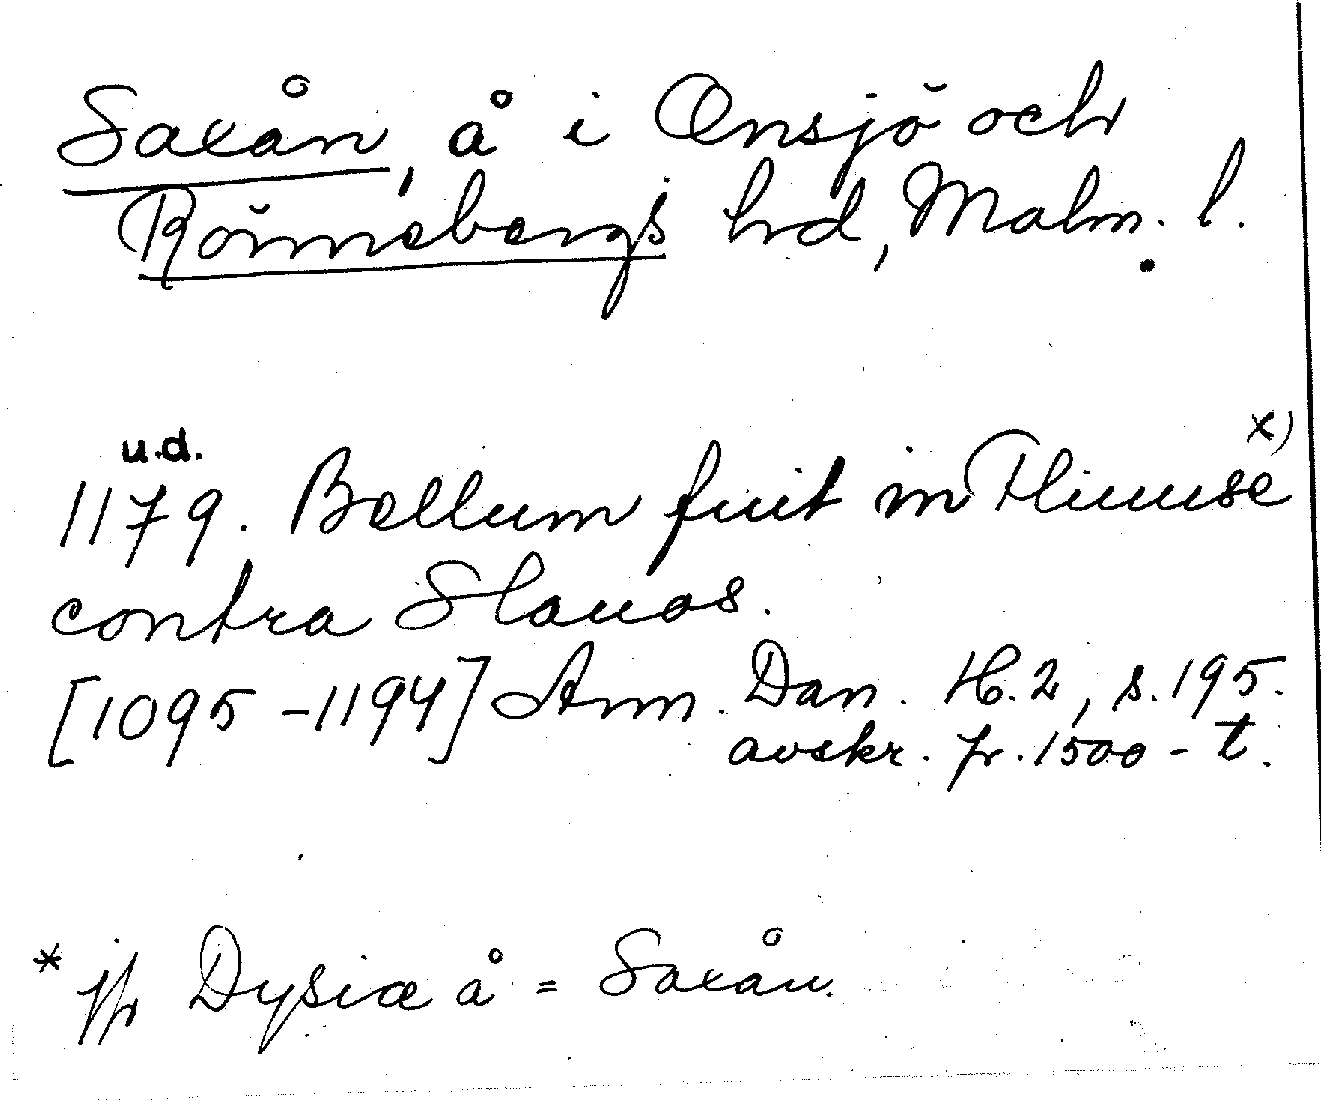 Saxån, å i Onsjö och
Rönnebergs hrd, Malm. l.
u.d.
x)
1179. Bellum fuit in Thiuuse
contra Slauos.
[1095-1194] Ann. Dan. H.2, s.195.
avskr. fr. 1500-t.
* jfr Dysiæ å = Saxån.